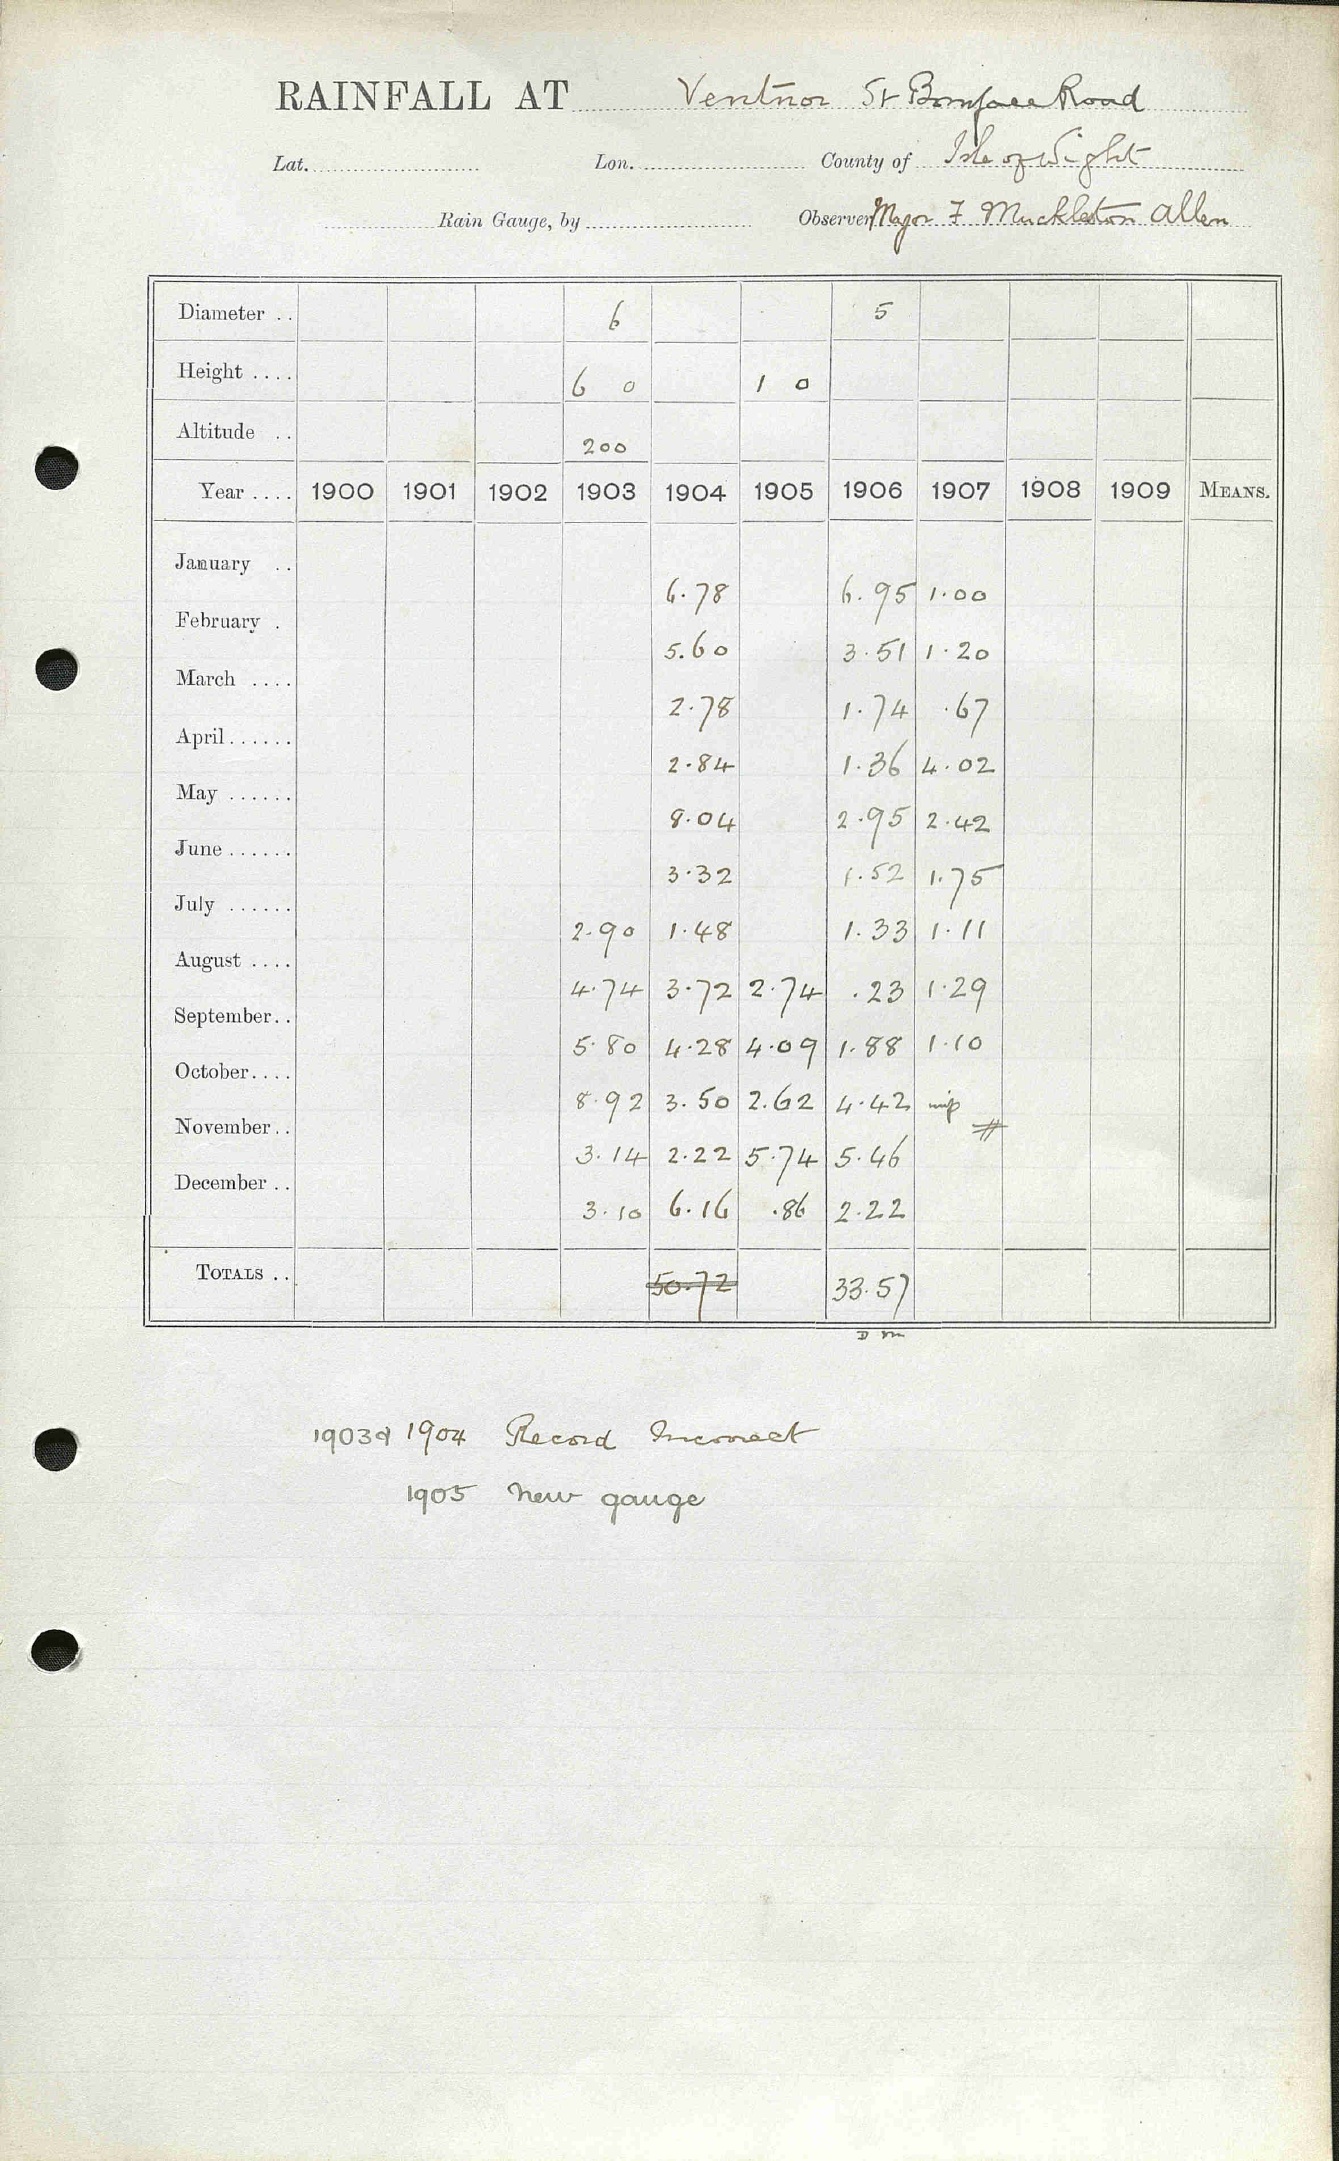 RAINFALL AT Ventnor St Boniface Road
Lat. Lon. County of Isle of Wight
Rain Gauge, by Observer Major F Muckleston Allen
Diameter .. 6 5
Height .... 6 0 1 0
Altitude .. 200
Year .... 1900 1901 1902 1903 1904 1905 1906 1907 1908 1909 MEANS.
January .. 6.78 6.95 1.00
February . 5.60 3.51 1.20
March .... 2.78 1.74 .67
April...... 2.84 1.36 4.02
May ...... 8.04 2.95 2.42
June ...... 3.32 1.52 1.75
July ...... 2.90 1.48 1.33 1.11
August .... 4.74 3.72 2.74 .23 1.29
September.. 5.80 4.28 4.09 1.88 1.10
October.... 8.92 3.50 2.62 4.42
November.. 3.14 2.22 5.74 5.46
December .. 3.10 6.16 .86 2.22
TOTALS .. 50.72 33.57
D M
1903 & 1904 Record Incorrect
1905 New gauge